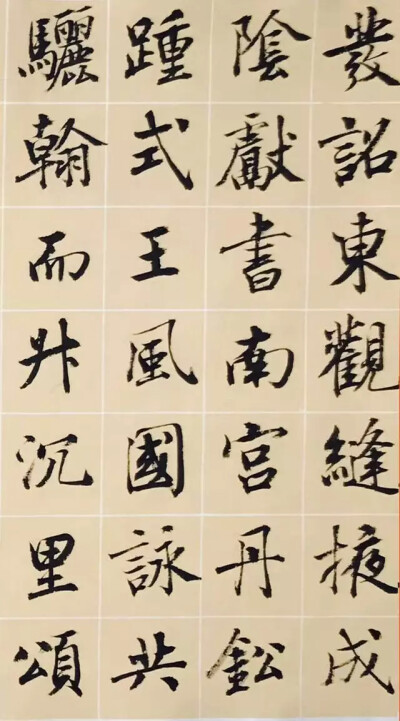 發詔東觀縫掖成
陰獻書南宮丹鈆
踵式王風國詠共
驪翰而升沉里頌